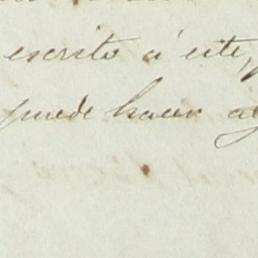 escrito á este,
puede hacer